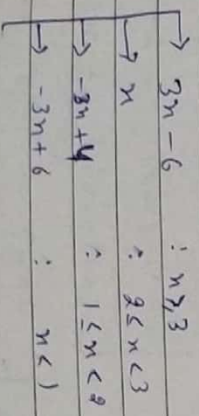 → 3x - 6 : x ≥ 3
→ x : 2 ≤ x < 3
→ -3x + 4 : 1 ≤ x < 2
→ -3x + 6 : x < 1